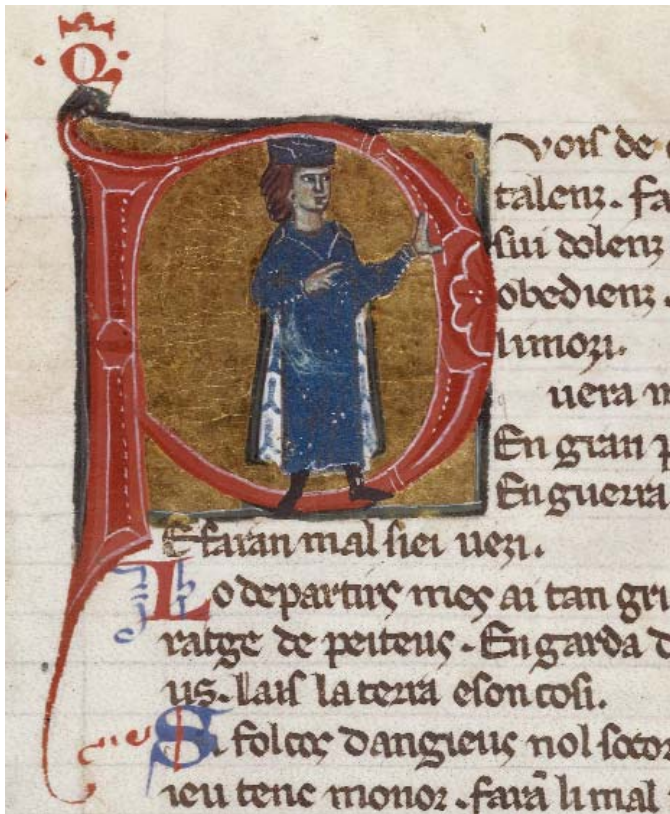 P vois de
talenz. fa
sui dolenz
obedienz.
limozi.
uera
En gran p
En guerra
E faran mal siei uezi.
Lo departirs mes ai tan gri
ratge de peiteus. En garda d
us. lais la terra eson cosi.
Si folcos dangieus nol socor
ieu tenc monor. farã li mal